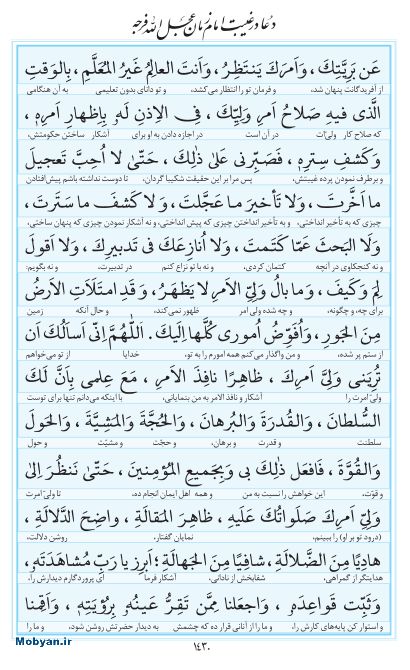 دعا در غیبت امام زمان عجل الله فرجه
عَن بَرِیَّتِكَ، وَاَمرَكَ یَنتَظِرُ، وَاَنتَ العالِمُ غَیرُ المُعَلَّمِ، بِالوَقتِ
از آفریدگانت پنهان شد، و فرمان تو را انتظار می‌کشد، و تو دانای بدون تعلیمی به آن هنگامی
الَّذی فیهِ صَلاحُ اَمرِ وَلِیِّكَ، فِی الاِذنِ لَهُ بِاِظهارِ اَمرِهِ،
که صلاح کار ولیّ‌ات در آن است در اجازه دادن به او برای آشکار ساختن حکومتش،
وَکَشفِ سِترِهِ، فَصَبِّرنی عَلیٰ ذٰلِكَ، حَتّیٰ لا اُحِبَّ تَعجیلَ
و برطرف نمودن پرده غیبتش، پس مرا بر این حقیقت شکیبا گردان، تا دوست نداشته باشم پیش‌افتادن
ما اَخَّرتَ، وَلا تَأخیرَ ما عَجَّلتَ، وَلا کَشفَ ما سَتَرتَ،
چیزی که به تأخیر انداختی، و به تأخیر انداختن چیزی که پیش انداختی، و نه آشکار نمودن چیزی که پنهان ساختی،
وَلَا البَحثَ عَمّا کَتَمتَ، وَلا اُنازِعَكَ فی تَدبیرِكَ، وَلا اَقولَ
و نه کنجکاوی در آنچه کتمان کردی، و نه با تو نزاع کنم در تدبیرت، و نه بگویم:
لِمَ وَکَیفَ، وَما بالُ وَلِیِّ الاَمرِ لا یَظهَرُ، وَقَدِ امتَلَأَتِ الاَرضُ
برای چه، و چگونه، و چه شده ولی امر ظهور نمی‌کند، و حال آنکه زمین
مِنَ الجَورِ، وَاُفَوِّضُ اُموری کُلَّها اِلَیكَ. اَللّٰهُمَّ اِنّی اَسأَلُكَ اَن
از ستم پر شده، و من واگذار می‌کنم همه امورم را به تو، خدایا از تو می‌خواهم
تُرِیَنی وَلِیَّ اَمرِكَ، ظاهِرًا نافِذَ الاَمرِ، مَعَ عِلمی بِاَنَّ لَكَ
ولیّ‌امرت را آشکار و نافذ الامر به من بنمایانی، با اینکه می‌دانم تنها برای توست
السُّلطانَ، وَالقُدرَةَ وَالبُرهانَ، وَالحُجَّةَ وَالمَشِیَّةَ، وَالحَولَ
سلطنت و قدرت و برهان، و حجّت و مشیّت و حول
وَالقُوَّةَ، فَافعَل ذٰلِكَ بی وَبِجَمیعِ المُؤمِنینَ، حَتّیٰ نَنظُرَ اِلیٰ
و قوّت، این خواهش را نسبت به من و همه اهل ایمان انجام ده، تا ولیّ امرت
وَلِیِّ اَمرِكَ صَلَواتُكَ عَلَیهِ، ظاهِرَ المَقالَةِ، واضِحَ الدَّلالَةِ،
(درود تو بر او) را ببینم، نمایان گفتار، روشن دلالت،
هادِیًا مِنَ الضَّلالَةِ، شافِیًا مِنَ الجَهالَةِ؛ اَبرِز یا رَبِّ مُشاهَدَتَهُ،
هدایتگر از گمراهی، شفابخش از نادانی، آشکار فرما ای پروردگارم دیدارش را،
وَثَبِّت قَواعِدَهُ، وَاجعَلنا مِمَّن تَقِرُّ عَینُهُ بِرُؤیَتِهِ، وَاَقِمنا
و استوار کن پایه‌های کارش را، و ما را از آنانی قرار ده که چشمش به دیدار حضرتش روشن شود، و ما را
۱۴۳۰
Mobyan.ir